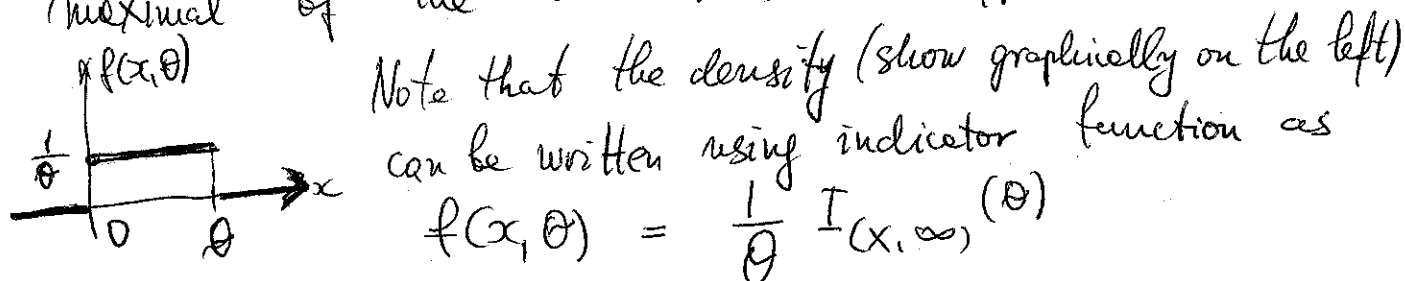 maximal of the
f(x,θ)
Note that the density (show graphically on the left)
can be written using indicator function as
1/θ
x
0 θ
f(x,θ) = 1/θ I_(x,∞)(θ)